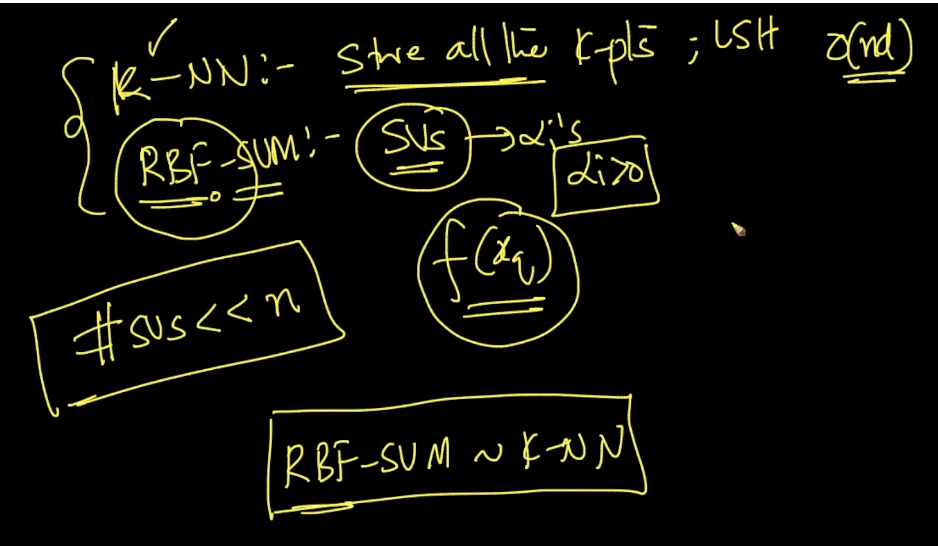 K-NN:- Store all the K-pts ; LSH O(nd)
RBF-SVM:- SVs → αi's
αi>0
f(xq)
#SVs << n
RBF-SVM ~ K-NN